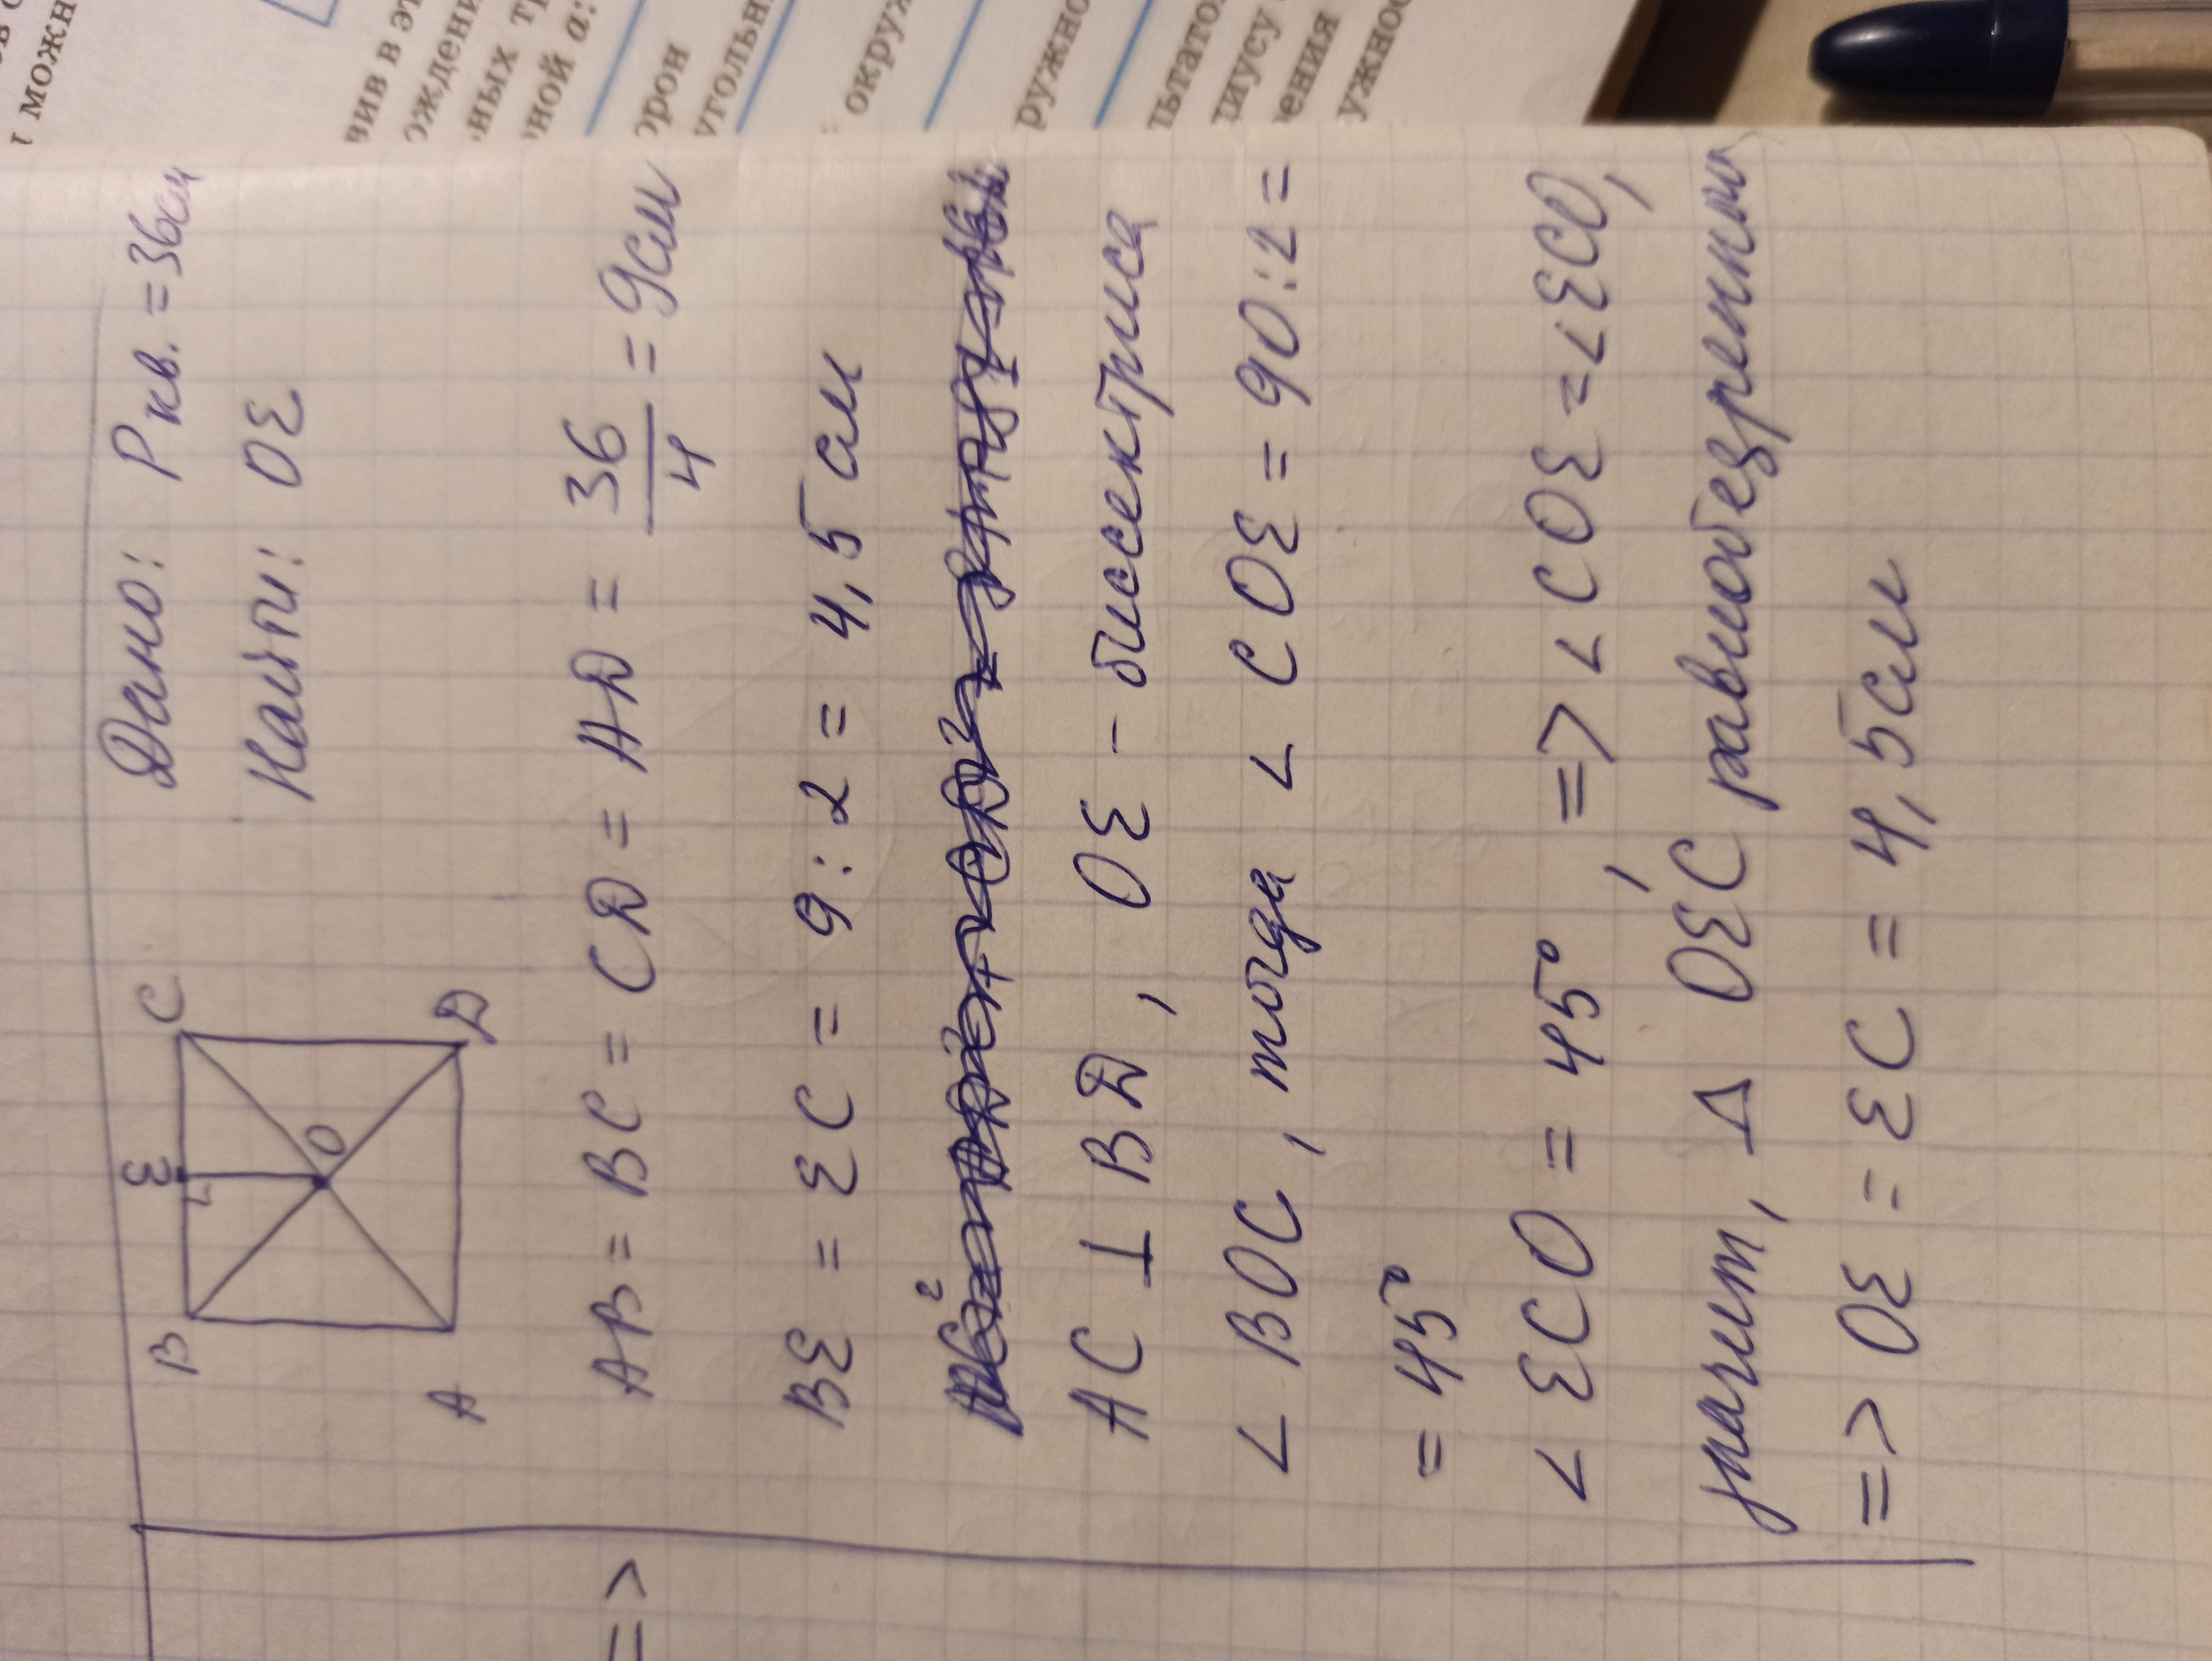 Дано: Pкв. = 36см
Найти: OE
B E C
O
A D
AB = BC = CD = AD = 36/4 = 9см
BE = EC = 9 : 2 = 4,5 см
AC ⊥ BD, OE – биссектриса
∠ BOC, тогда ∠ COE = 90 : 2 =
= 45°
∠ ECO = 45°, => ∠ COE = ∠ECO,
значит, Δ OEC равнобедренный
=> OE = EC = 4,5см
=>
можн
вив в эт
ождени
ных тр
ной a:
орон
угольн
окруж
ружно
льтато
диусу
ения
ужнос